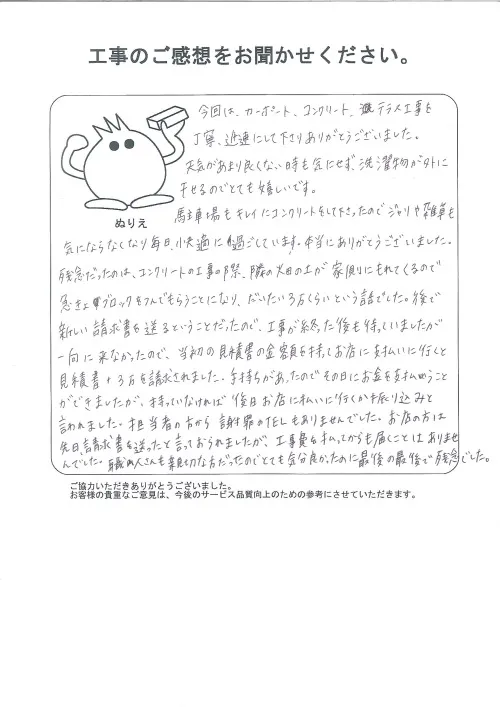 工事のご感想をお聞かせください。
今回は、カーポート、コンクリート、テラス工事を
丁寧、迅速にして下さりありがとうございました。
天気があまり良くない時も気にせず、洗濯物が外に
干せるのでとても嬉しいです。
駐車場もキレイにコンクリートをして下さったのでジャリや雑草も
ぬりえ
気にならなくなり毎日、快適に過ごしています。本当にありがとうございました。
残念だったのは、コンクリートの工事の際、隣の畑の土が家側にもれてくるので
急きょブロックをつんでもらうことになり、だいたい3万くらいという話でした。後で
新しい請求書を送るということだったので、工事が終った後も待っていましたが
一向に来なかったので、当初の見積書の金額を持ってお店に支払いに行くと
見積書+3万を請求されました。手持ちがあったのでその日にお金を支払うこと
ができましたが、持っていなければ後日お店に払いに行くか振り込みと
言われました。担当者の方から謝罪のTELもありませんでした。お店の方は
先日、請求書を送ったと言っておられましたが、工事費を払ってからも届くことはありませ
んでした。職人さんも親切な方だったのでとても気分良かったのに最後の最後で残念でした。
ご協力いただきありがとうございました。
お客様の貴重なご意見は、今後のサービス品質向上のための参考にさせていただきます。